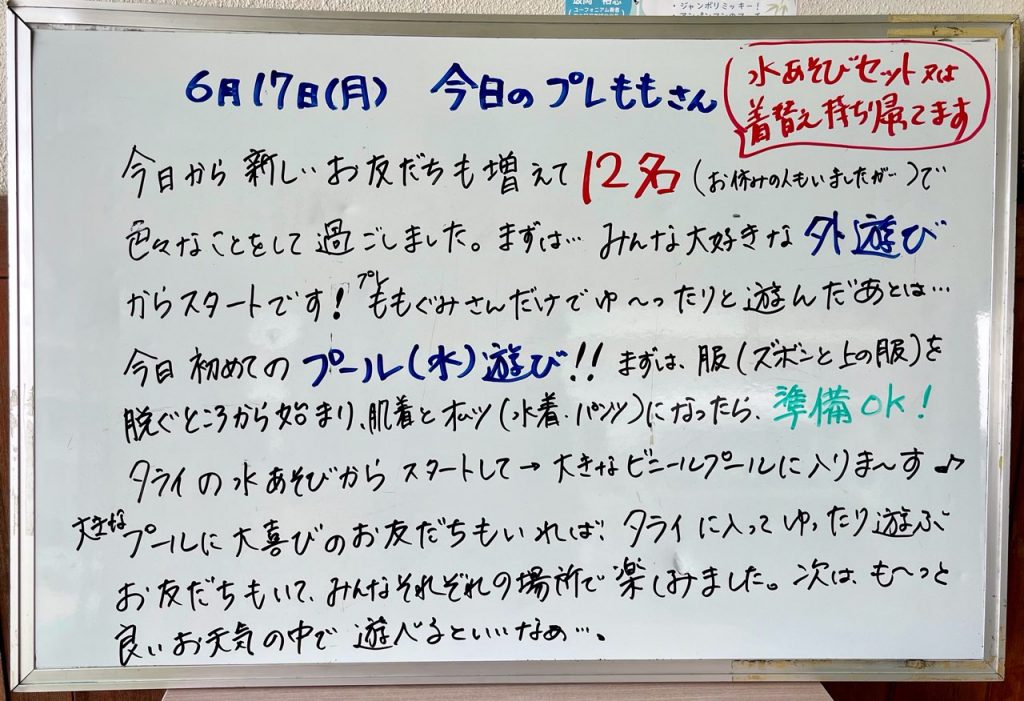 ・ジャンボリミッキー！
6月17日(月) 今日のプレももさん
水あそびセット又は
着替え持ち帰てます
今日から新しいお友だちも増えて12名(お休みの人もいましたが…)で
色々なことをして過ごしました。まずは… みんな大好きな外遊び
からスタートです！プレももぐみさんだけでゆ〜ったりと遊んだあとは…
今日初めてのプール(水)遊び!! まずは、服(ズボンと上の服)を
脱ぐところから始まり、肌着とオムツ(水着・パンツ)になったら、準備OK！
タライの水あそびからスタートして→大きなビニールプールに入りま〜す♪
大きなプールに大喜びのお友だちもいれば、タライに入ってゆったり遊ぶ
お友だちもいて、みんなそれぞれの場所で楽しみました。次は、も〜っと
良いお天気の中で遊べるといいなぁ…。